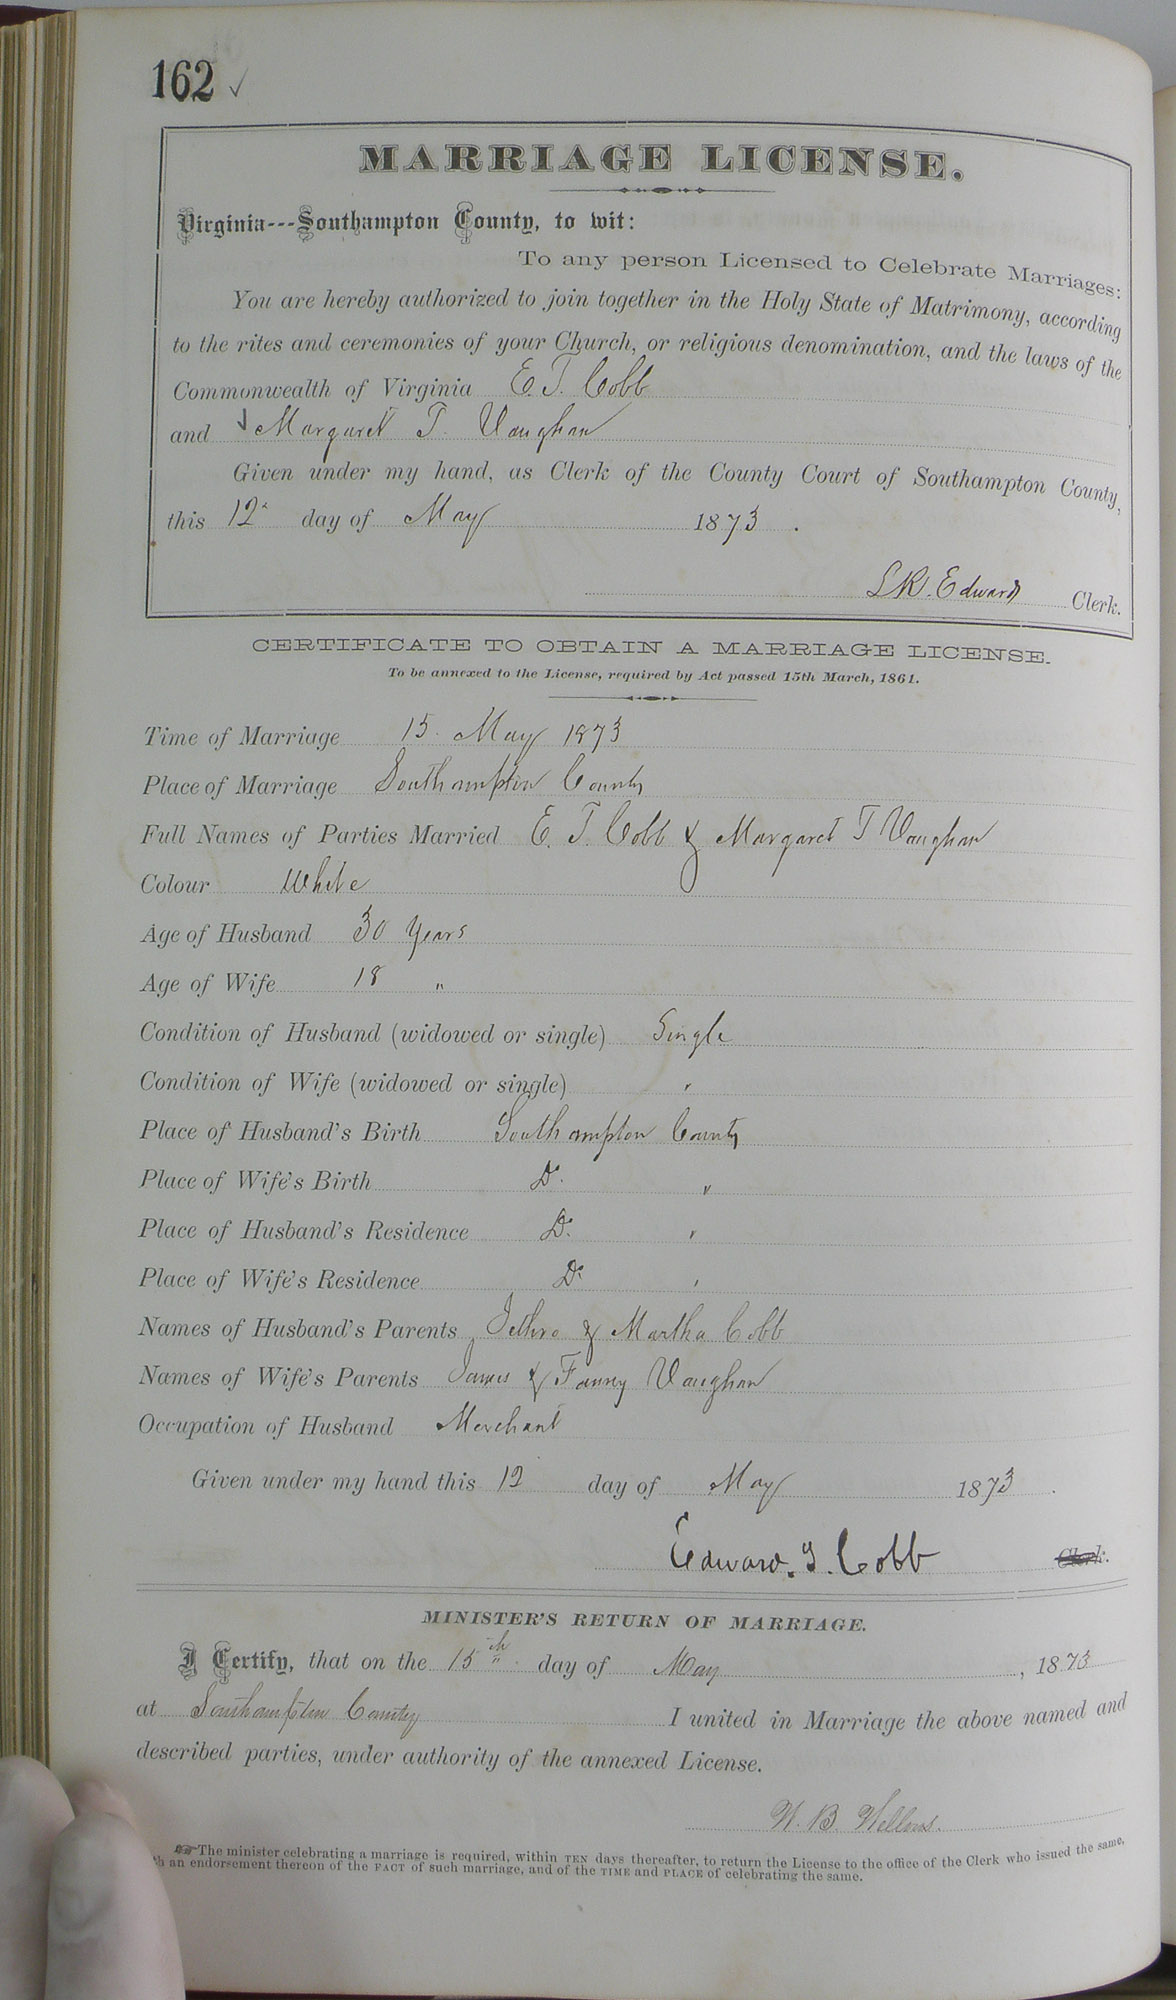 162 ✓
MARRIAGE LICENSE.
Virginia---Southampton County, to wit:
To any person Licensed to Celebrate Marriages:
You are hereby authorized to join together in the Holy State of Matrimony, according
to the rites and ceremonies of your Church, or religious denomination, and the laws of the
Commonwealth of Virginia E. T. Cobb
and ✓ Margaret T. Vaughan
Given under my hand, as Clerk of the County Court of Southampton County,
this 12 day of May 1873.
L. R. Edwards Clerk.
CERTIFICATE TO OBTAIN A MARRIAGE LICENSE.
To be annexed to the License, required by Act passed 15th March, 1861.
Time of Marriage 15. May 1873
Place of Marriage Southampton County
Full Names of Parties Married E. T. Cobb & Margaret T Vaughan
Colour White
Age of Husband 30 Years
Age of Wife 18 "
Condition of Husband (widowed or single) Single
Condition of Wife (widowed or single) "
Place of Husband's Birth Southampton County
Place of Wife's Birth Do. "
Place of Husband's Residence Do. "
Place of Wife's Residence Do. "
Names of Husband's Parents Jethro & Martha Cobb
Names of Wife's Parents James & Fanny Vaughan
Occupation of Husband Merchant
Given under my hand this 12 day of May 1873.
Edward. T. Cobb Clerk.
MINISTER'S RETURN OF MARRIAGE.
I Certify, that on the 15th day of May, 1873
at Southampton County I united in Marriage the above named and
described parties, under authority of the annexed License.
W. B. Wellons.
☞The minister celebrating a marriage is required, within TEN days thereafter, to return the License to the office of the Clerk who issued the same,
th an endorsement thereon of the FACT of such marriage, and of the TIME and PLACE of celebrating the same.